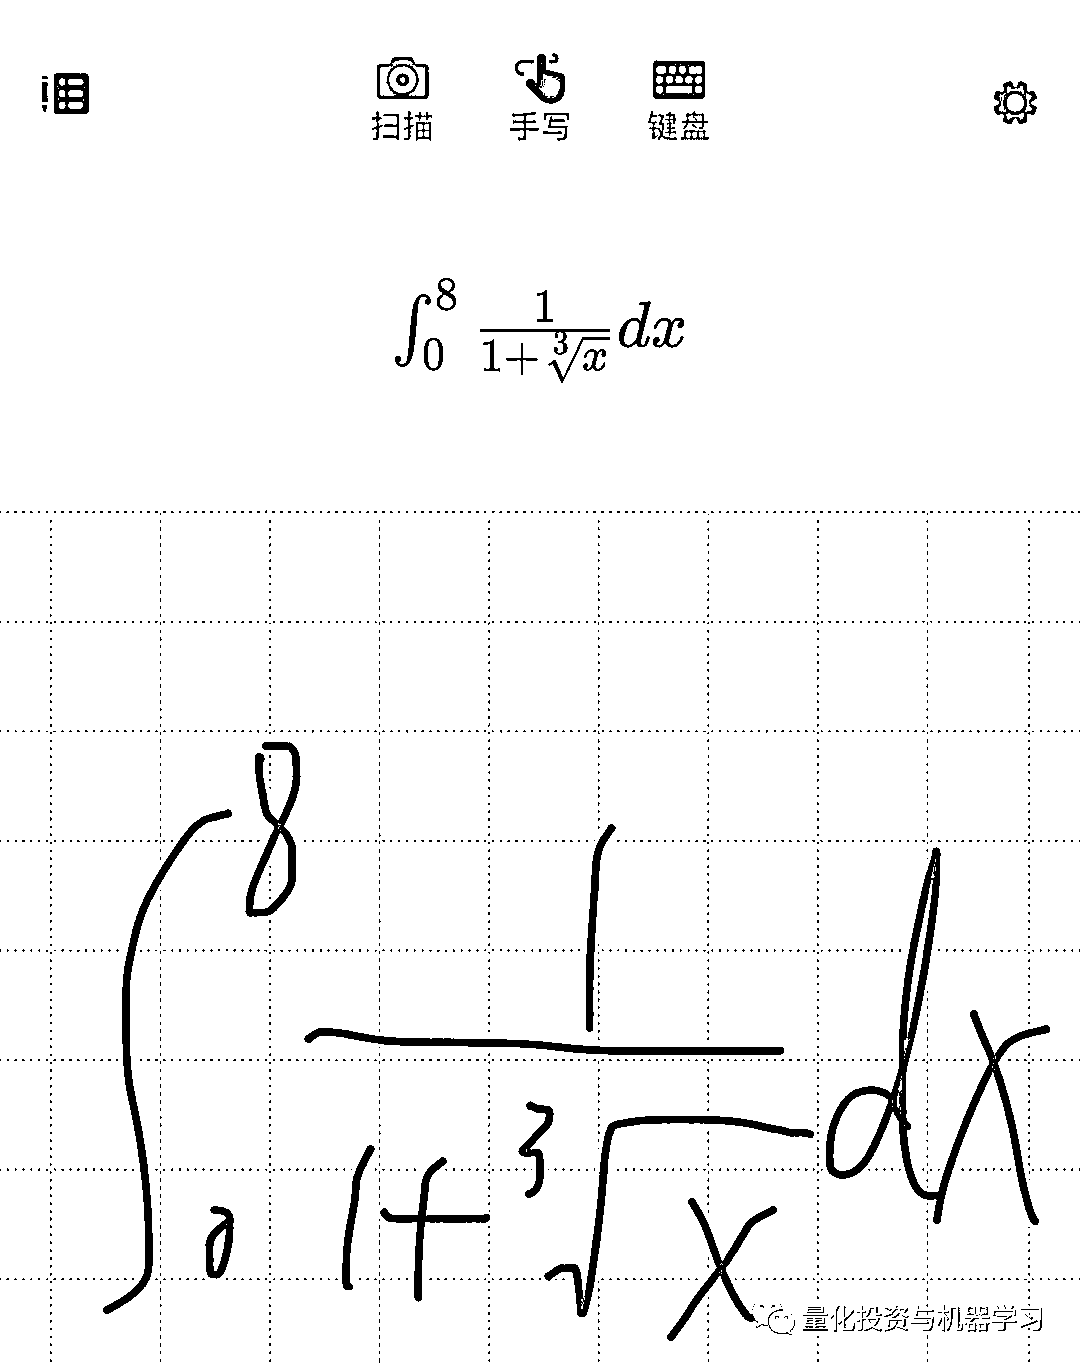 扫描 手写 键盘
∫₀⁸ 1/(1+∛x) dx
∫₀⁸ 1/(1+∛x) dx
量化投资与机器学习